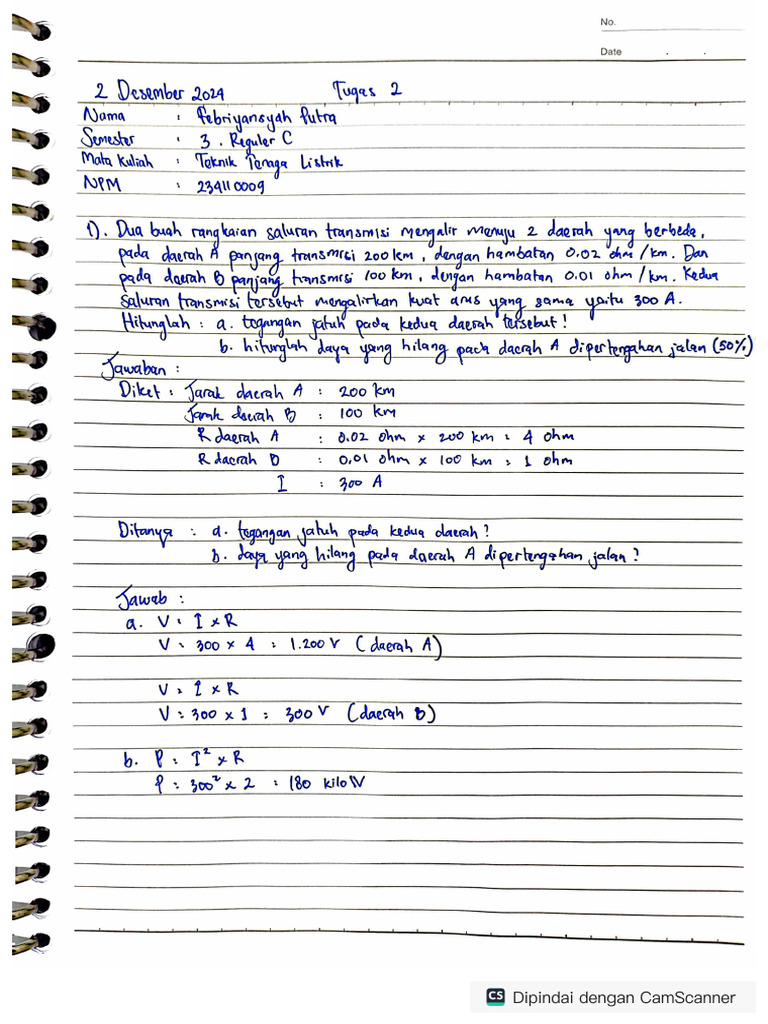 No.
Date
2 Desember 2024 Tugas 2
Nama : Febriyansyah Putra
Semester : 3 . Reguler C
Mata Kuliah : Teknik Tenaga Listrik
NPM : 234110009
1). Dua buah rangkaian saluran transmisi mengalir menuju 2 daerah yang berbeda,
pada daerah A panjang transmisi 200 km, dengan hambatan 0.02 ohm/km. Dan
pada daerah B panjang transmisi 100 km, dengan hambatan 0.01 ohm/km. Kedua
Saluran transmisi tersebut mengalirkan kuat arus yang sama yaitu 300 A.
Hitunglah : a. tegangan jatuh pada kedua daerah tersebut!
b. hitunglah daya yang hilang pada daerah A dipertengahan jalan (50%)
Jawaban :
Diket : Jarak daerah A : 200 km
Jarak daerah B : 100 km
R daerah A : 0.02 ohm x 200 km = 4 ohm
R daerah B : 0.01 ohm x 100 km = 1 ohm
I : 300 A
Ditanya : a. tegangan jatuh pada kedua daerah?
b. daya yang hilang pada daerah A dipertengahan jalan?
Jawab :
a. V = I x R
V = 300 x 4 = 1.200 V (daerah A)
V = I x R
V = 300 x 1 = 300 V (daerah B)
b. P = I² x R
P = 300² x 2 = 180 kiloW
CS Dipindai dengan CamScanner